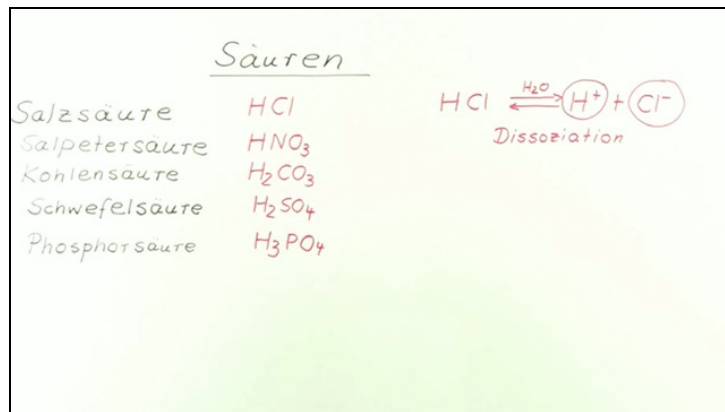 Säuren
Salzsäure HCl
Salpetersäure HNO₃
Kohlensäure H₂CO₃
Schwefelsäure H₂SO₄
Phosphorsäure H₃PO₄
HCl ⇌ H⁺ + Cl⁻
H₂O
Dissoziation